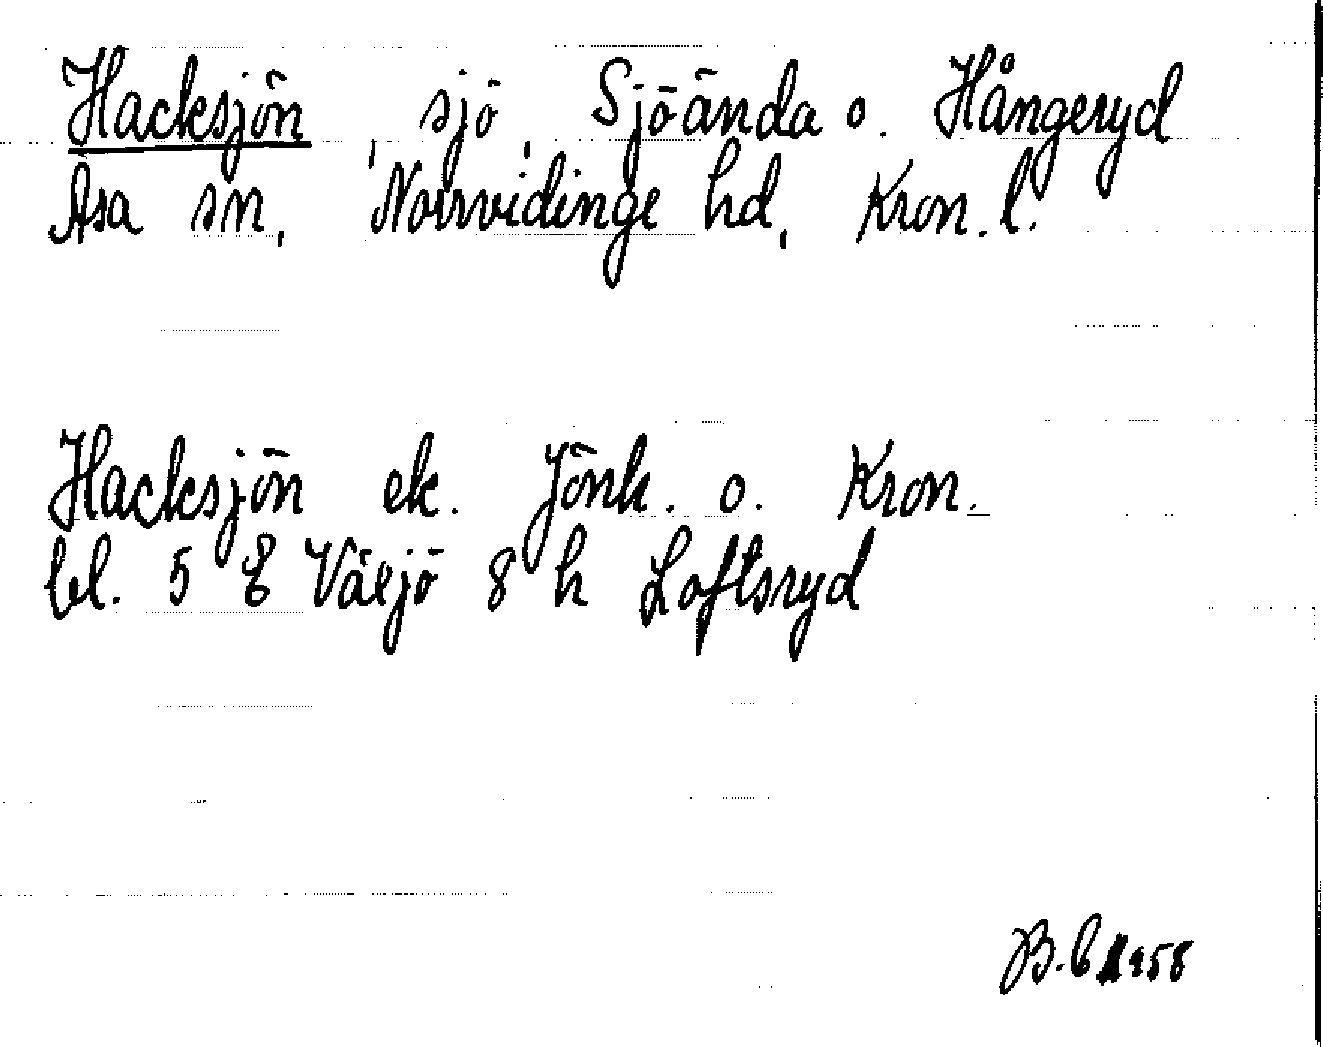 Hacksjön, sjö, Sjöända o. Hångeryd
Asa sn, Norrvidinge hd, Kron.l.
Hacksjön ek. Jönk. o. Kron.
bl. 5 E Växjö 8 h Loftsryd